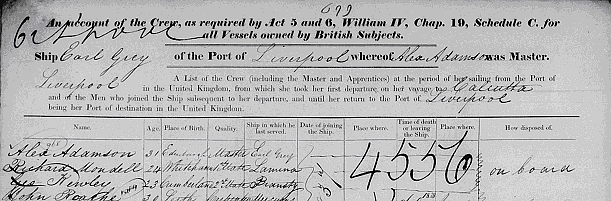 699
An account of the Crew, as required by Act 5 and 6, William IV, Chap. 19, Schedule C. for
all Vessels owned by British Subjects.
Ship Earl Grey of the Port of Liverpool whereof Alex Adamson was Master.
A List of the Crew (including the Master and Apprentices) at the period of her sailing from the Port of
Liverpool in the United Kingdom, from which she took her first departure on her voyage to Calcutta
and of the Men who joined the Ship subsequent to her departure, and until her return to the Port of Liverpool
being her Port of destination in the United Kingdom.
Name. Age. Place of Birth. Quality. Ship in which he last served. Date of joining the Ship. Place where. Time of death or leaving the Ship. Place where. How disposed of.
Alex Adamson 31 Edinburgh Master Earl Grey 4556 on board
Richard 24 Mate Lamina
Kewley 23 Cumberland 2d Mate
John